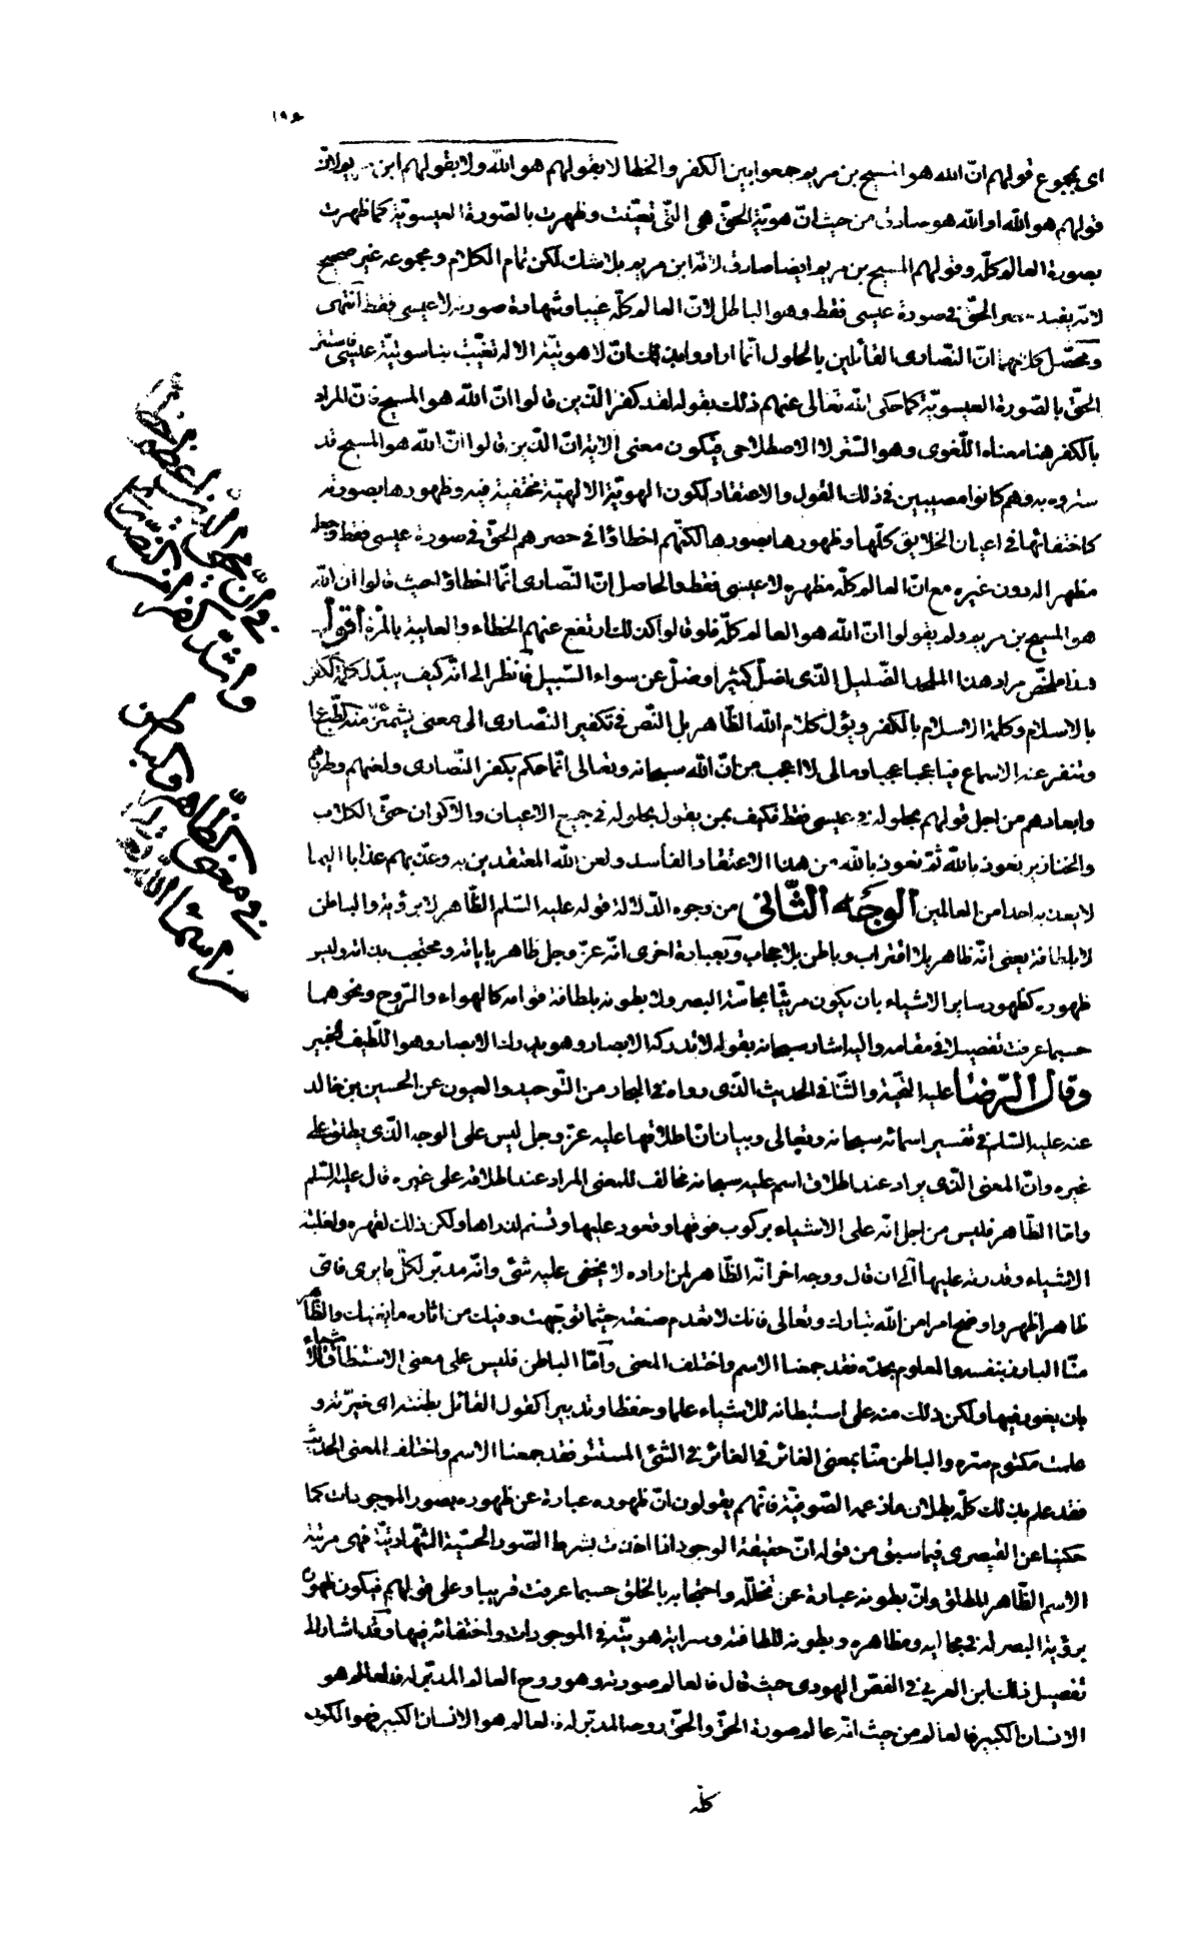 ١٩٤
اى بمجموع قولهم انّ الله هو المسيح بن مريم جمعوا بين الكفر والخطا لا بقولهم هو الله ولا بقولهم ابن مريم لانّ
قولهم هو الله او الله هو صادق من حيث انّ هويّة الحقّ هى الّتى تعيّنت وظهرت بالصّورة العيسويّة كما ظهرت
بصورة العالم كلّه وقولهم المسيح بن مريم ايضا صادق لانّه ابن مريم بلا شك لكن تمام الكلام ومجموعه غير صحيح
لانّه يفيد حصر الحقّ فى صورة عيسى فقط وهو الباطل لانّ العالم كلّه غيبا وشهادة صورته لا عيسى فقط انتهى
ومحصّل كلامهما انّ النّصارى القائلين بالحلول انّما ارادوا بذلك انّ لاهوتيّة الاله تغيّبت بناسوتيّة عيسى فاستتر
الحقّ بالصّورة العيسويّة كما حكى الله تعالى عنهم ذلك بقوله لقد كفر الّذين قالوا انّ الله هو المسيح فانّ المراد
بالكفر هنا معناه اللّغوى وهو السّتر لا الاصطلاحى فيكون معنى الاية انّ الّذين قالوا انّ الله هو المسيح قد
ستروه به وهم كانوا مصيبين فى ذلك القول والاعتقاد لكون الهويّة الالهيّة مختفية فيه وظهورها بصورته
كاختفائها فى اعيان الخلايق كلّها وظهورها بصورها لكنّهم اخطاؤا فى حصرهم الحقّ فى صورة عيسى فقط وجعله
مظهرا له دون غيره مع انّ العالم كلّه مظهره لا عيسى فقط والحاصل انّ النّصارى انّما اخطاؤا حيث قالوا ان الله
هو المسيح بن مريم ولم يقولوا انّ الله هو العالم كلّه فلو قالوا كذلك ارتفع عنهم الخطاء والعايبة بالمرّة أقول
هذا ملخّص مراد هذا الملحد الضّليل الّذى اضلّ كثيرا وضلّ عن سواء السّبيل فانظر الى انّه كيف يبدّل كلمة الكفر
بالاسلام وكلمة الاسلام بالكفر ويؤل كلام الله الظّاهر بل النّص فى تكفير النّصارى الى معنى يشمئزّ منه الطّباع
وتنفر عنه الاسماع فيا عجبا عجبا ومالى لا اعجب من انّ الله سبحانه وتعالى انّما حكم بكفر النّصارى ولعنهم وطردهم
وابعادهم من اجل قولهم بحلوله فى عيسى فقط فكيف بمن يقول بحلوله فى جميع الاعيان والاكوان حتّى الكلاب
والخنازير نعوذ بالله ثمّ نعوذ بالله من هذا الاعتقاد الفاسد ولعن الله المعتقدين به وعذّبهم عذابا اليما
لا يعذب به احدا من العالمين الوجه الثّانى من وجوه الدّلالة قوله عليه السّلم الظّاهر لا برؤية والباطن
لا بلطافة يعنى انّه ظاهر بلا اقتراب وباطن بلا حجاب وبعبارة اخرى انّه عزّ وجل ظاهر باياته ومحتجب بذاته وليس
ظهوره كظهور ساير الاشياء بان يكون مرئيّا بحاسّة البصر ولا بطونه بلطافة قوامه كالهواء والرّوح ونحوهما
حسبما عرفت تفصيلا فى مقامه واليه اشار سبحانه بقوله لا تدركه الابصار وهو يدرك الابصار وهو اللّطيف الخبير
وقال الرّضا عليه التّحيّة والثّناء فى الحديث الّذى رواه فى البحار من التّوحيد والعيون عن الحسين بن خالد
عنه عليه السّلم فى تفسير اسمائه سبحانه وتعالى وبيان انّ اطلاقها عليه عزّ وجل ليس على الوجه الّذى يطلق على
غيره وانّ المعنى الّذى يراد عند اطلاق اسم عليه سبحانه مخالف للمعنى المراد عند اطلاقه على غيره قال عليه السّلم
وامّا الظّاهر فليس من اجل انّه على الاشياء بركوب فوقها وقعود عليها وتسنم لذراها ولكن ذلك لقهره ولغلبته
الاشياء وقدرته عليها الى ان قال ووجه اخر انّه الظّاهر لمن اراده لا يخفى عليه شئ وانّه مدبّر لكلّ ما يرى فاىّ
ظاهر اظهر واوضح امرا من الله تبارك وتعالى فانك لا تعدم صنعته حيثما توجّهت وفيك من اثاره ما يغنيك والظّاهر
منّا البارز بنفسه والمعلوم بحدّه فقد جمعنا الاسم واختلف المعنى وامّا الباطن فليس على معنى الاستبطان للاشياء
بان يغور فيها ولكن ذلك منه على استبطانه للاشياء علما وحفظا وتدبيرا كقول القائل بطنته اى خبرته و
علمت مكتوم سرّه والباطن منّا بمعنى الغائر فى الغائر فى الشئ المستتر فقد جمعنا الاسم واختلف المعنى الحديث
فقد علم بذلك كلّه بطلان ما ذعمه الصّوفيّة فانّهم يقولون انّ ظهوره عبارة عن ظهوره بصور الموجودات كما
حكينا عن القيصرى فيما سبق من قوله انّ حقيقة الوجود اذا اخذت بشرط الصّور الحسيّة الشّهاديّة فهى مرتبة
الاسم الظّاهر المطلق وانّ بطونه عبارة عن تخلّله واحتجابه بالخلق حسبما عرفت قريبا وعلى قولهم فيكون ظهوره
برؤية البصر له فى مجاليه ومظاهره وبطونه للطافته وسراية هويّته فى الموجودات واختفائه فيها وقد اشار الى
تفصيل ذلك ابن العربى فى الفصّ الهودى حيث قال فالعالم صورته وهو روح العالم المدبّر له فالعالم هو
الانسان الكبير فالعالم من حيث انّه عالم صورة الحقّ والحقّ روحه المدبّر له فالعالم هو الانسان الكبير فهو الكون
كلّه
فى معنى الظّاهر والباطن
من اسماء الله